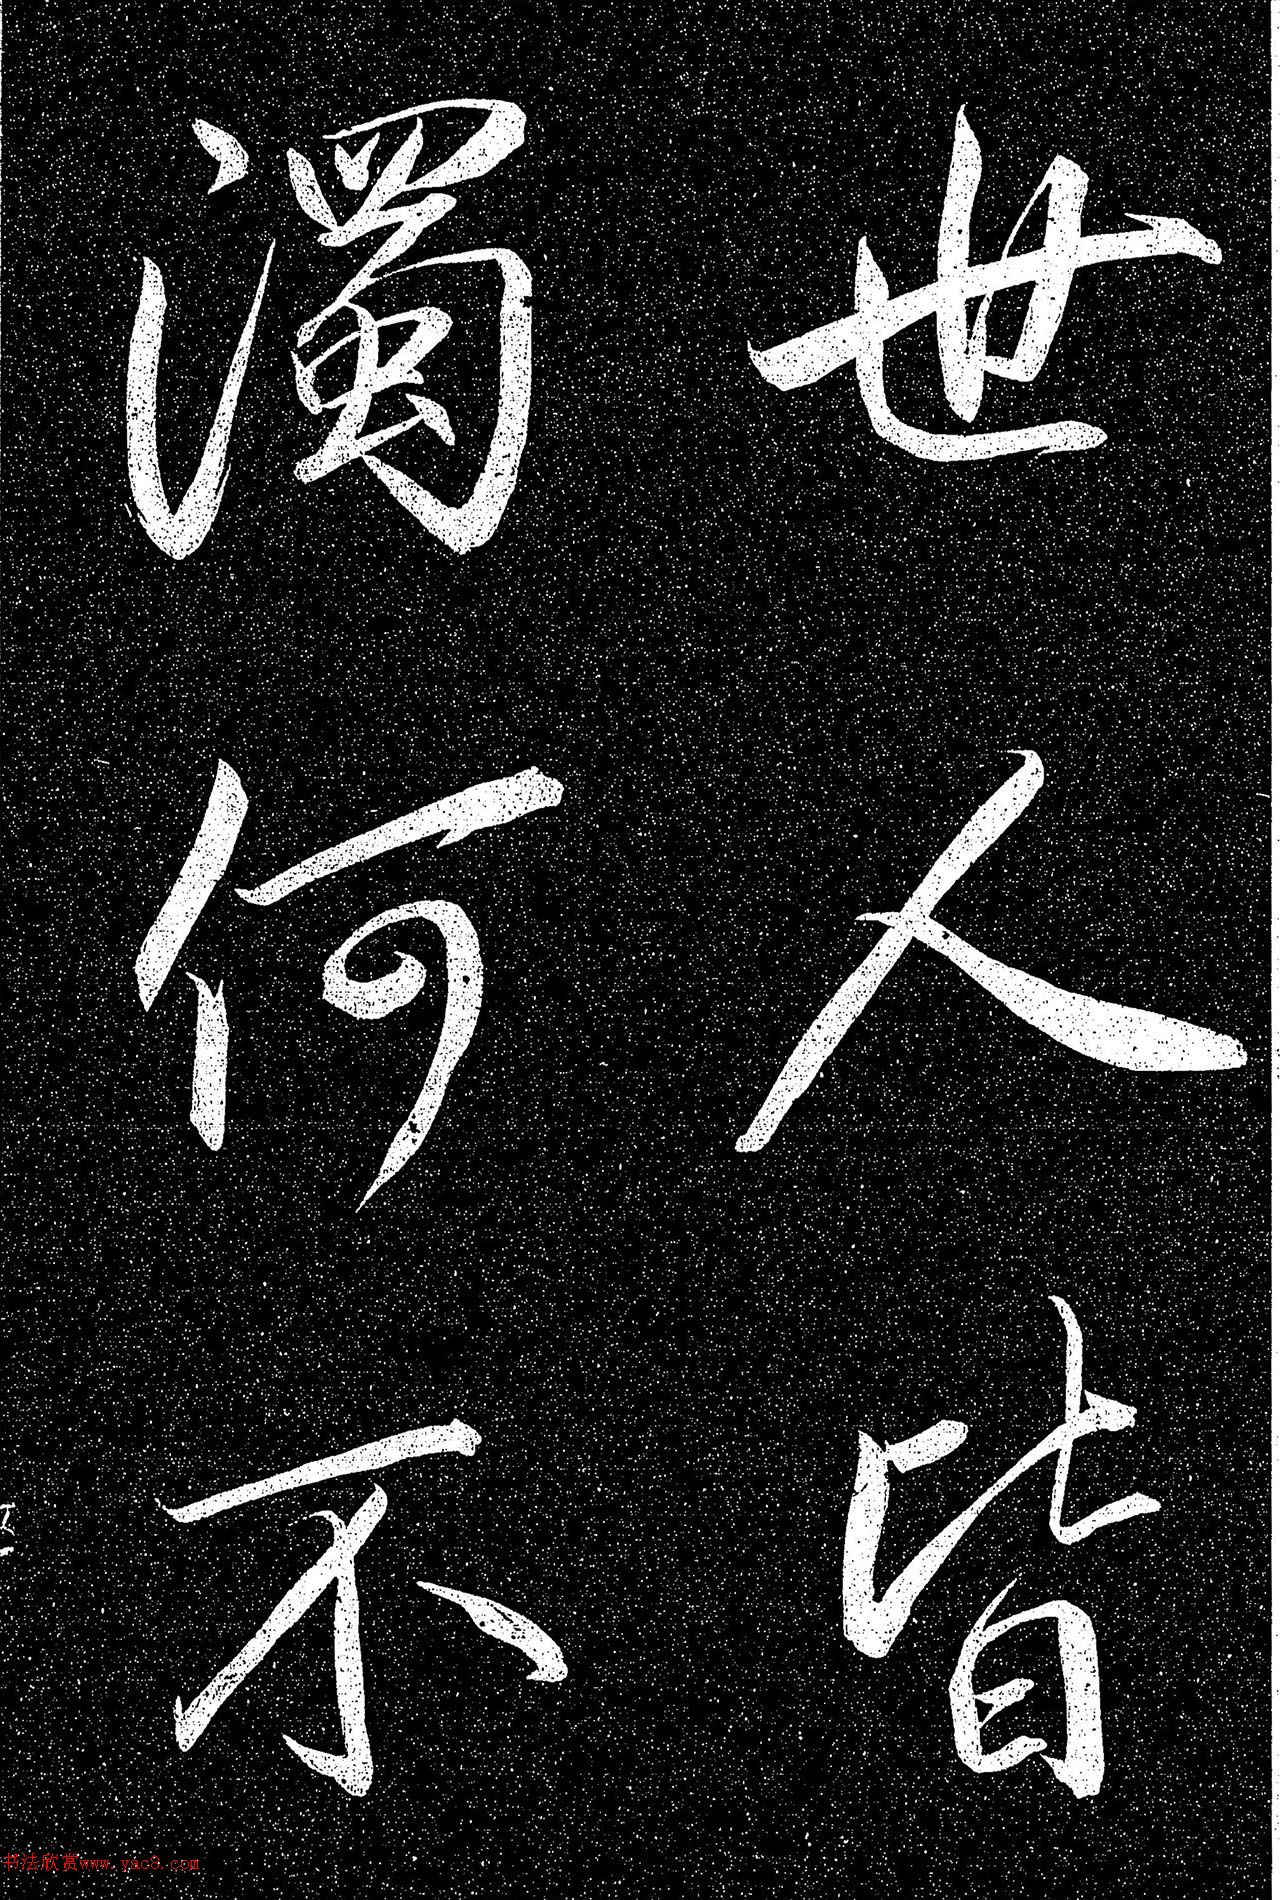 世人皆
濁何不
书法欣赏www.yac8.com